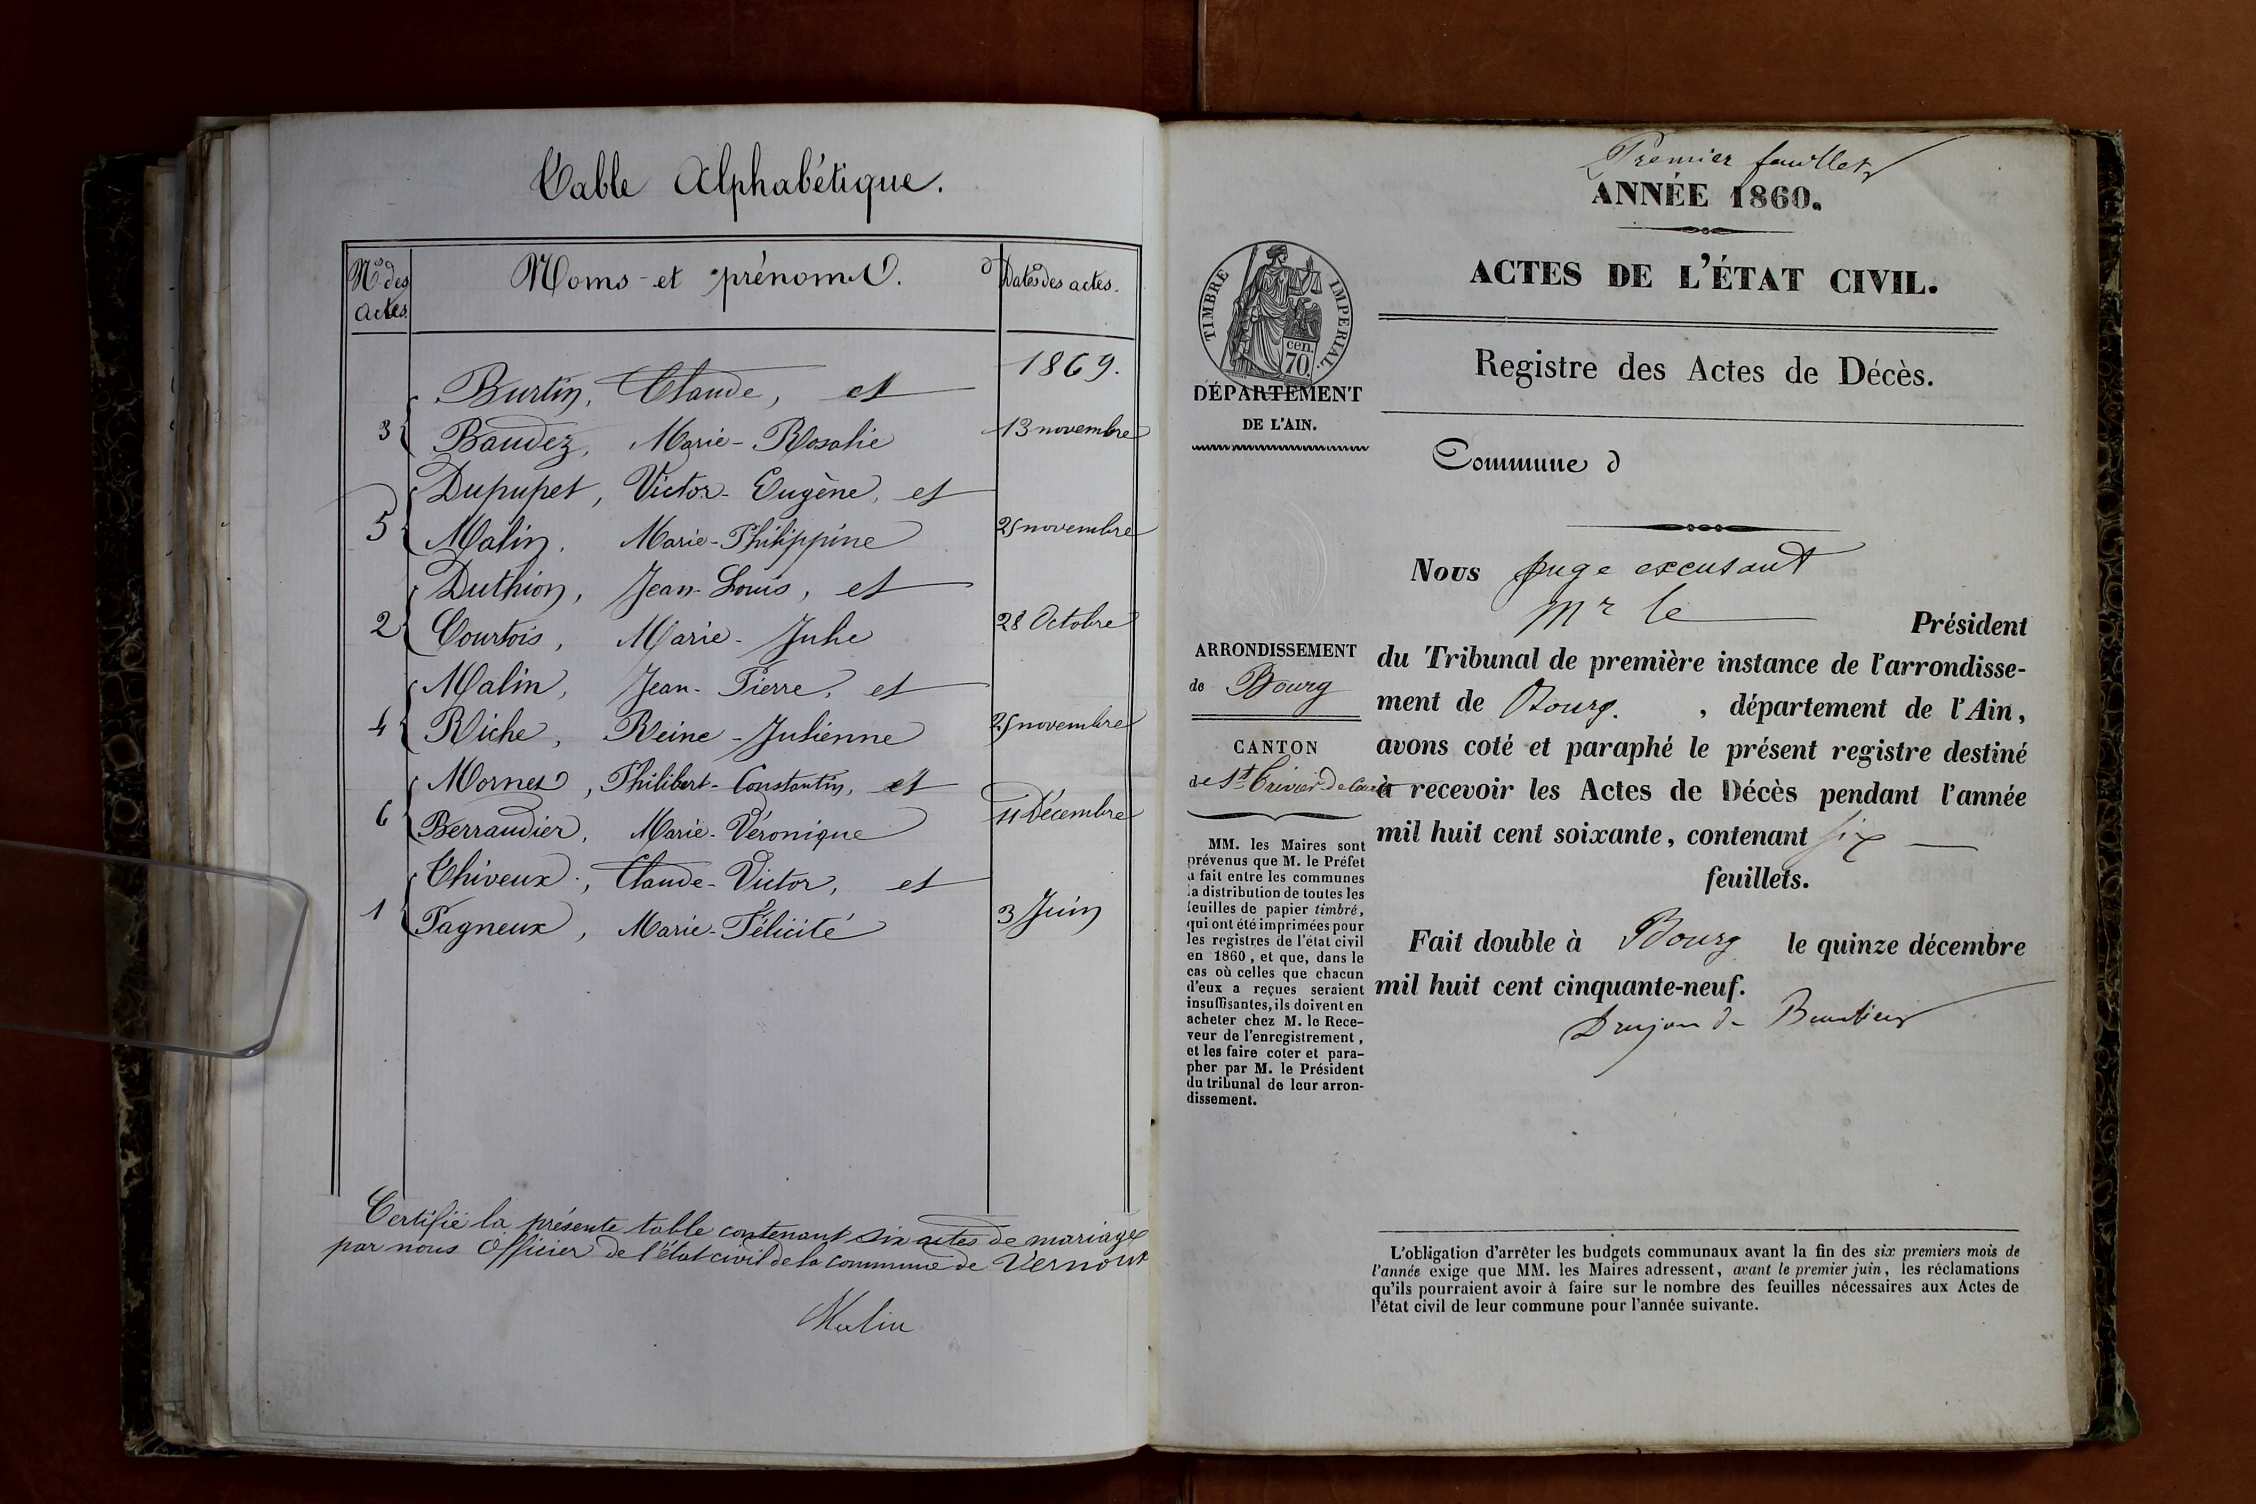 Table Alphabétique.
Nos des actes
Noms et prénoms.
Dates des actes.
1869.
Burtin, Claude, et
3 Baudez, Marie-Rosalie 13 novembre
Dupupet, Victor-Eugène, et
5 Malin, Marie-Philippine 25 novembre
Duthion, Jean-Louis, et
2 Courtois, Marie-Julie 28 Octobre
Malin, Jean-Pierre, et
4 Riche, Reine-Julienne 25 novembre
Mornet, Philibert-Constantin, et
6 Berraudier, Marie-Véronique 11 Décembre
Thiveux, Claude-Victor, et
1 Pagneux, Marie-Félicité 3 Juin
Certifié la présente table contenant six actes de mariage
par nous Officier de l'état civil de la commune de Vernoux
Malin
Premier feuillet
ANNÉE 1860.
ACTES DE L'ÉTAT CIVIL.
Registre des Actes de Décès.
TIMBRE IMPERIAL.
cen.
70.
DÉPARTEMENT
DE L'AIN.
Commune d
Nous Juge excusant
Mr le Président
du Tribunal de première instance de l'arrondisse-
ment de Bourg. , département de l'Ain,
avons coté et paraphé le présent registre destiné
à recevoir les Actes de Décès pendant l'année
mil huit cent soixante, contenant six
feuillets.
Fait double à Bourg le quinze décembre
mil huit cent cinquante-neuf.
ARRONDISSEMENT
de Bourg
CANTON
de St Trivier de
MM. les Maires sont
prévenus que M. le Préfet
a fait entre les communes
la distribution de toutes les
feuilles de papier timbré,
qui ont été imprimées pour
les registres de l'état civil
en 1860, et que, dans le
cas où celles que chacun
d'eux a reçues seraient
insuffisantes, ils doivent en
acheter chez M. le Rece-
veur de l'enregistrement,
et les faire coter et para-
pher par M. le Président
du tribunal de leur arron-
dissement.
L'obligation d'arrêter les budgets communaux avant la fin des six premiers mois de
l'année exige que MM. les Maires adressent, avant le premier juin, les réclamations
qu'ils pourraient avoir à faire sur le nombre des feuilles nécessaires aux Actes de
l'état civil de leur commune pour l'année suivante.